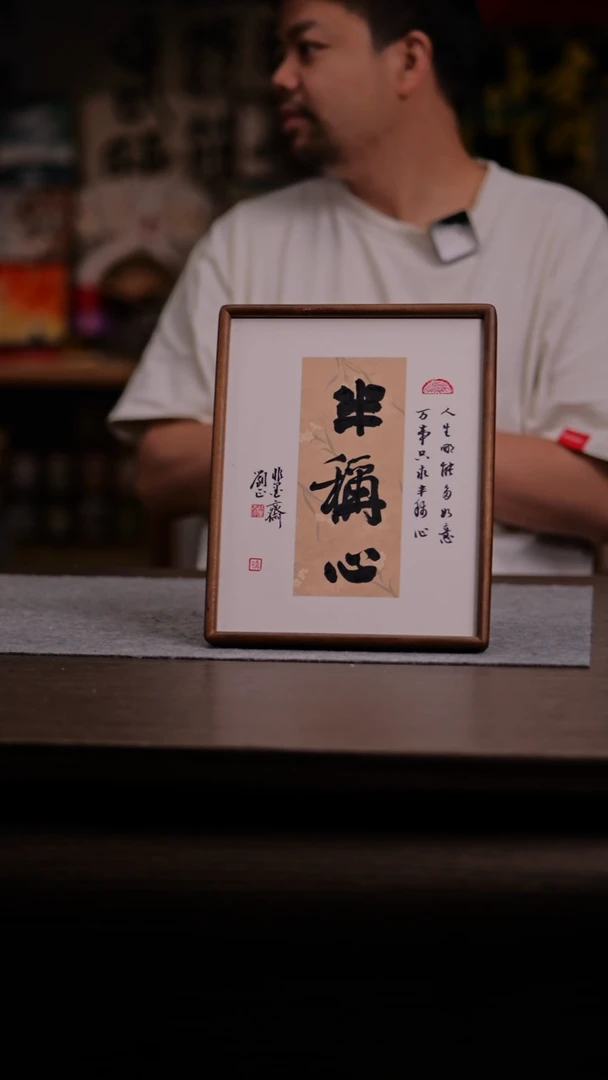 人生哪能多如意
万事只求半称心
半稱心
非墨齋
劉正